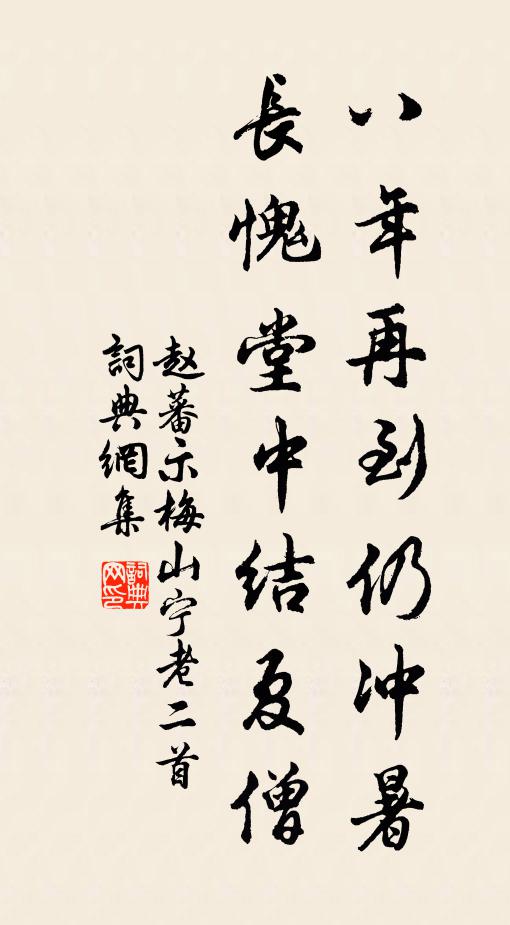 八年再到仍冲暑
長愧堂中结夏僧
赵蕃示梅山宁老二首
詞典網集
詞典
网印